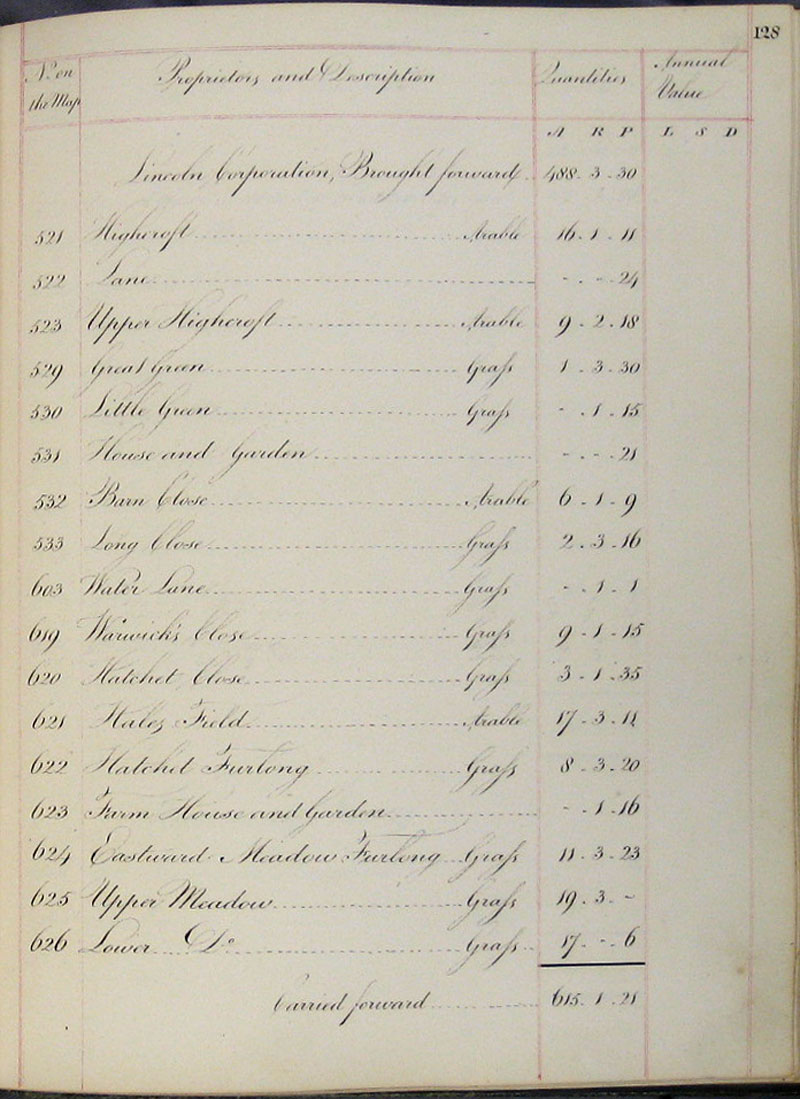 128
No. on the Map Proprietors and Description Quantities Annual Value
A R P L S D
Lincoln Corporation, Brought forward 488 . 3 . 30
521 Highcroft Arable 16 . 1 . 11
522 Lane - . - . 24
523 Upper Highcroft Arable 9 . 2 . 18
529 Great Green Graſs 1 . 3 . 30
530 Little Green Graſs - . 1 . 15
531 House and Garden - . - . 21
532 Barn Close Arable 6 . 1 . 9
533 Long Close Graſs 2 . 3 . 16
603 Water Lane Graſs - . 1 . 1
619 Warwick's Close Graſs 9 . 1 . 15
620 Hatchet Close Graſs 3 . 1 . 35
621 Hales Field Arable 17 . 3 . 11
622 Hatchet Furlong Graſs 8 . 3 . 20
623 Farm House and Garden - . 1 . 16
624 Eastward Meadow Furlong Graſs 11 . 3 . 23
625 Upper Meadow Graſs 19 . 3 . -
626 Lower Do Graſs 17 . - . 6
Carried forward 615 . 1 . 21